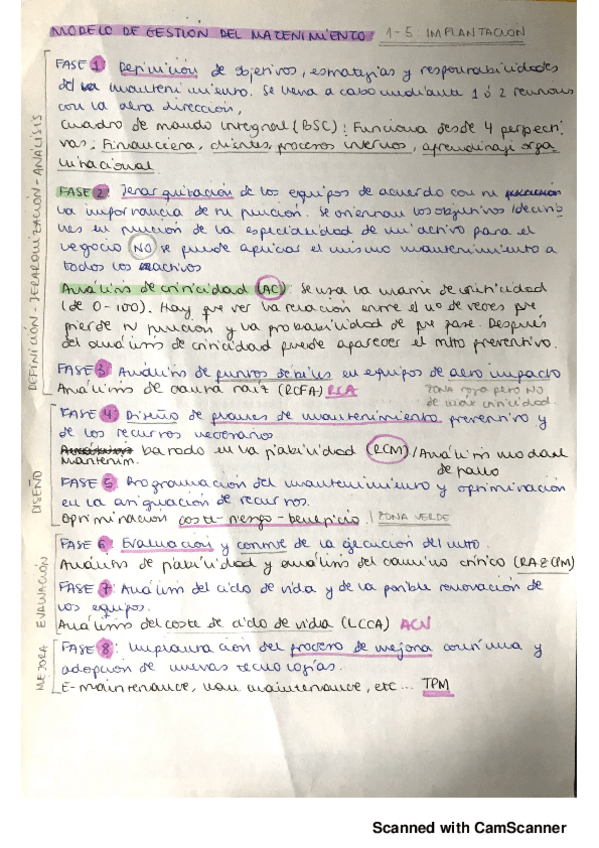 MODELO DE GESTIÓN DEL MATENIMIENTO: 1-5 IMPLANTACION
FASE 1 Definición de objetivos, estrategias y responsabilidades
del mantenimiento. Se lleva a cabo mediante 1 ó 2 reuniones
con la alta dirección,
Cuadro de mando integral (BSC): Funciona desde 4 perpecti-
vas: Financiera, clientes, procesos internos, aprendizaje orga
nizacional.
FASE 2: Jerarquización de los equipos de acuerdo con su
la importancia de su función. Se orientan los objetivos /decisio
nes en función de la especialidad de un activo para el
negocio NO se puede aplicar el mismo mantenimiento a
todos los activos
Análisis de criticidad (AC): Se usa la matriz de criticidad
(de 0-100). Hay que ver la relación entre el nº de veces que
pierde su función y la probabilidad de que pase. Después
del análisis de criticidad puede aparecer el mtto preventivo.
FASE 3: Análisis de puntos débiles en equipos de alto impacto
Análisis de causa raíz (RCFA) RCA ZONA roja pero NO
de max criticidad
FASE 4: Diseño de planes de mantenimiento preventivo y
de los recursos necesarios
mantenim. basado en la fiabilidad (RCM) /Análisis modal
de fallo
FASE 5: Programación del mantenimiento y optimización
en la asignación de recursos.
Optimización coste-riesgo-beneficio | ZONA VERDE
FASE 6: Evaluación y control de la ejecución del mtto.
Análisis de fiabilidad y análisis del camino crítico (RA&CPM)
FASE 7: Análisis del ciclo de vida y de la posible renovación de
los equipos.
Análisis del coste de ciclo de vida (LCCA) ACV
FASE 8: Implantación del proceso de mejora continua y
adopción de nuevas tecnologías.
E-maintenance, lean maintenance, etc... TPM
DEFINICIÓN - JERARQUIZACIÓN - ANÁLISIS
DISEÑO
EVALUACIÓN
MEJORA
Scanned with CamScanner